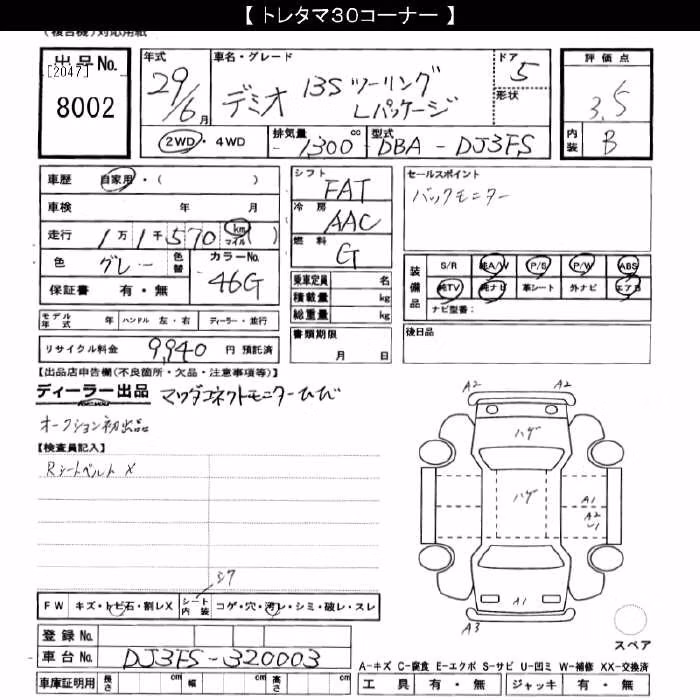 【 トレタマ30コーナー 】
(複合機)対応用紙
出品No.
[2047]
8002
年式
29/6月
車名・グレード
デミオ 13S ツーリング
Lパッケージ
ドア
5
形状
評価点
3.5
内装
B
2WD・4WD
排気量 1300 cc
型式 DBA-DJ3FS
車歴 自家用・( )
車検 年 月
走行 1万1千570 km マイル
色 グレー 色替 カラーNo. 46G
保証書 有・無
シフト FAT
冷房 AAC
燃料 G
乗車定員 名
積載量 kg
総重量 kg
セールスポイント
バックモニター
装備品
S/R 純A/W P/S P/W ABS
純TV 純ナビ 革シート 外ナビ エアB
ナビ型番:
モデル年式 年 ハンドル 左・右 ディーラー・並行
リサイクル料金 9,940 円 預託済
書類期限
月 日
後日品
【出品店申告欄(不良箇所・欠品・注意事項等)】
ディーラー出品 マツダコネクトモニターひび
オークション初出品
【検査員記入】
Rシートベルト X
A2 A2
ハゲ
ハゲ
A1
A2
A1
A3
シワ
FW キズ・トビ石・割レX シート内装 コゲ・穴・汚レ・シミ・破レ・スレ
スペア
登録No.
車台No. DJ3FS-320003
A-キズ C-腐食 E-エクボ S-サビ U-凹ミ W-補修 XX-交換済
車庫証明用 長さ cm 幅 cm 高さ cm
工具 有・無 ジャッキ 有・無